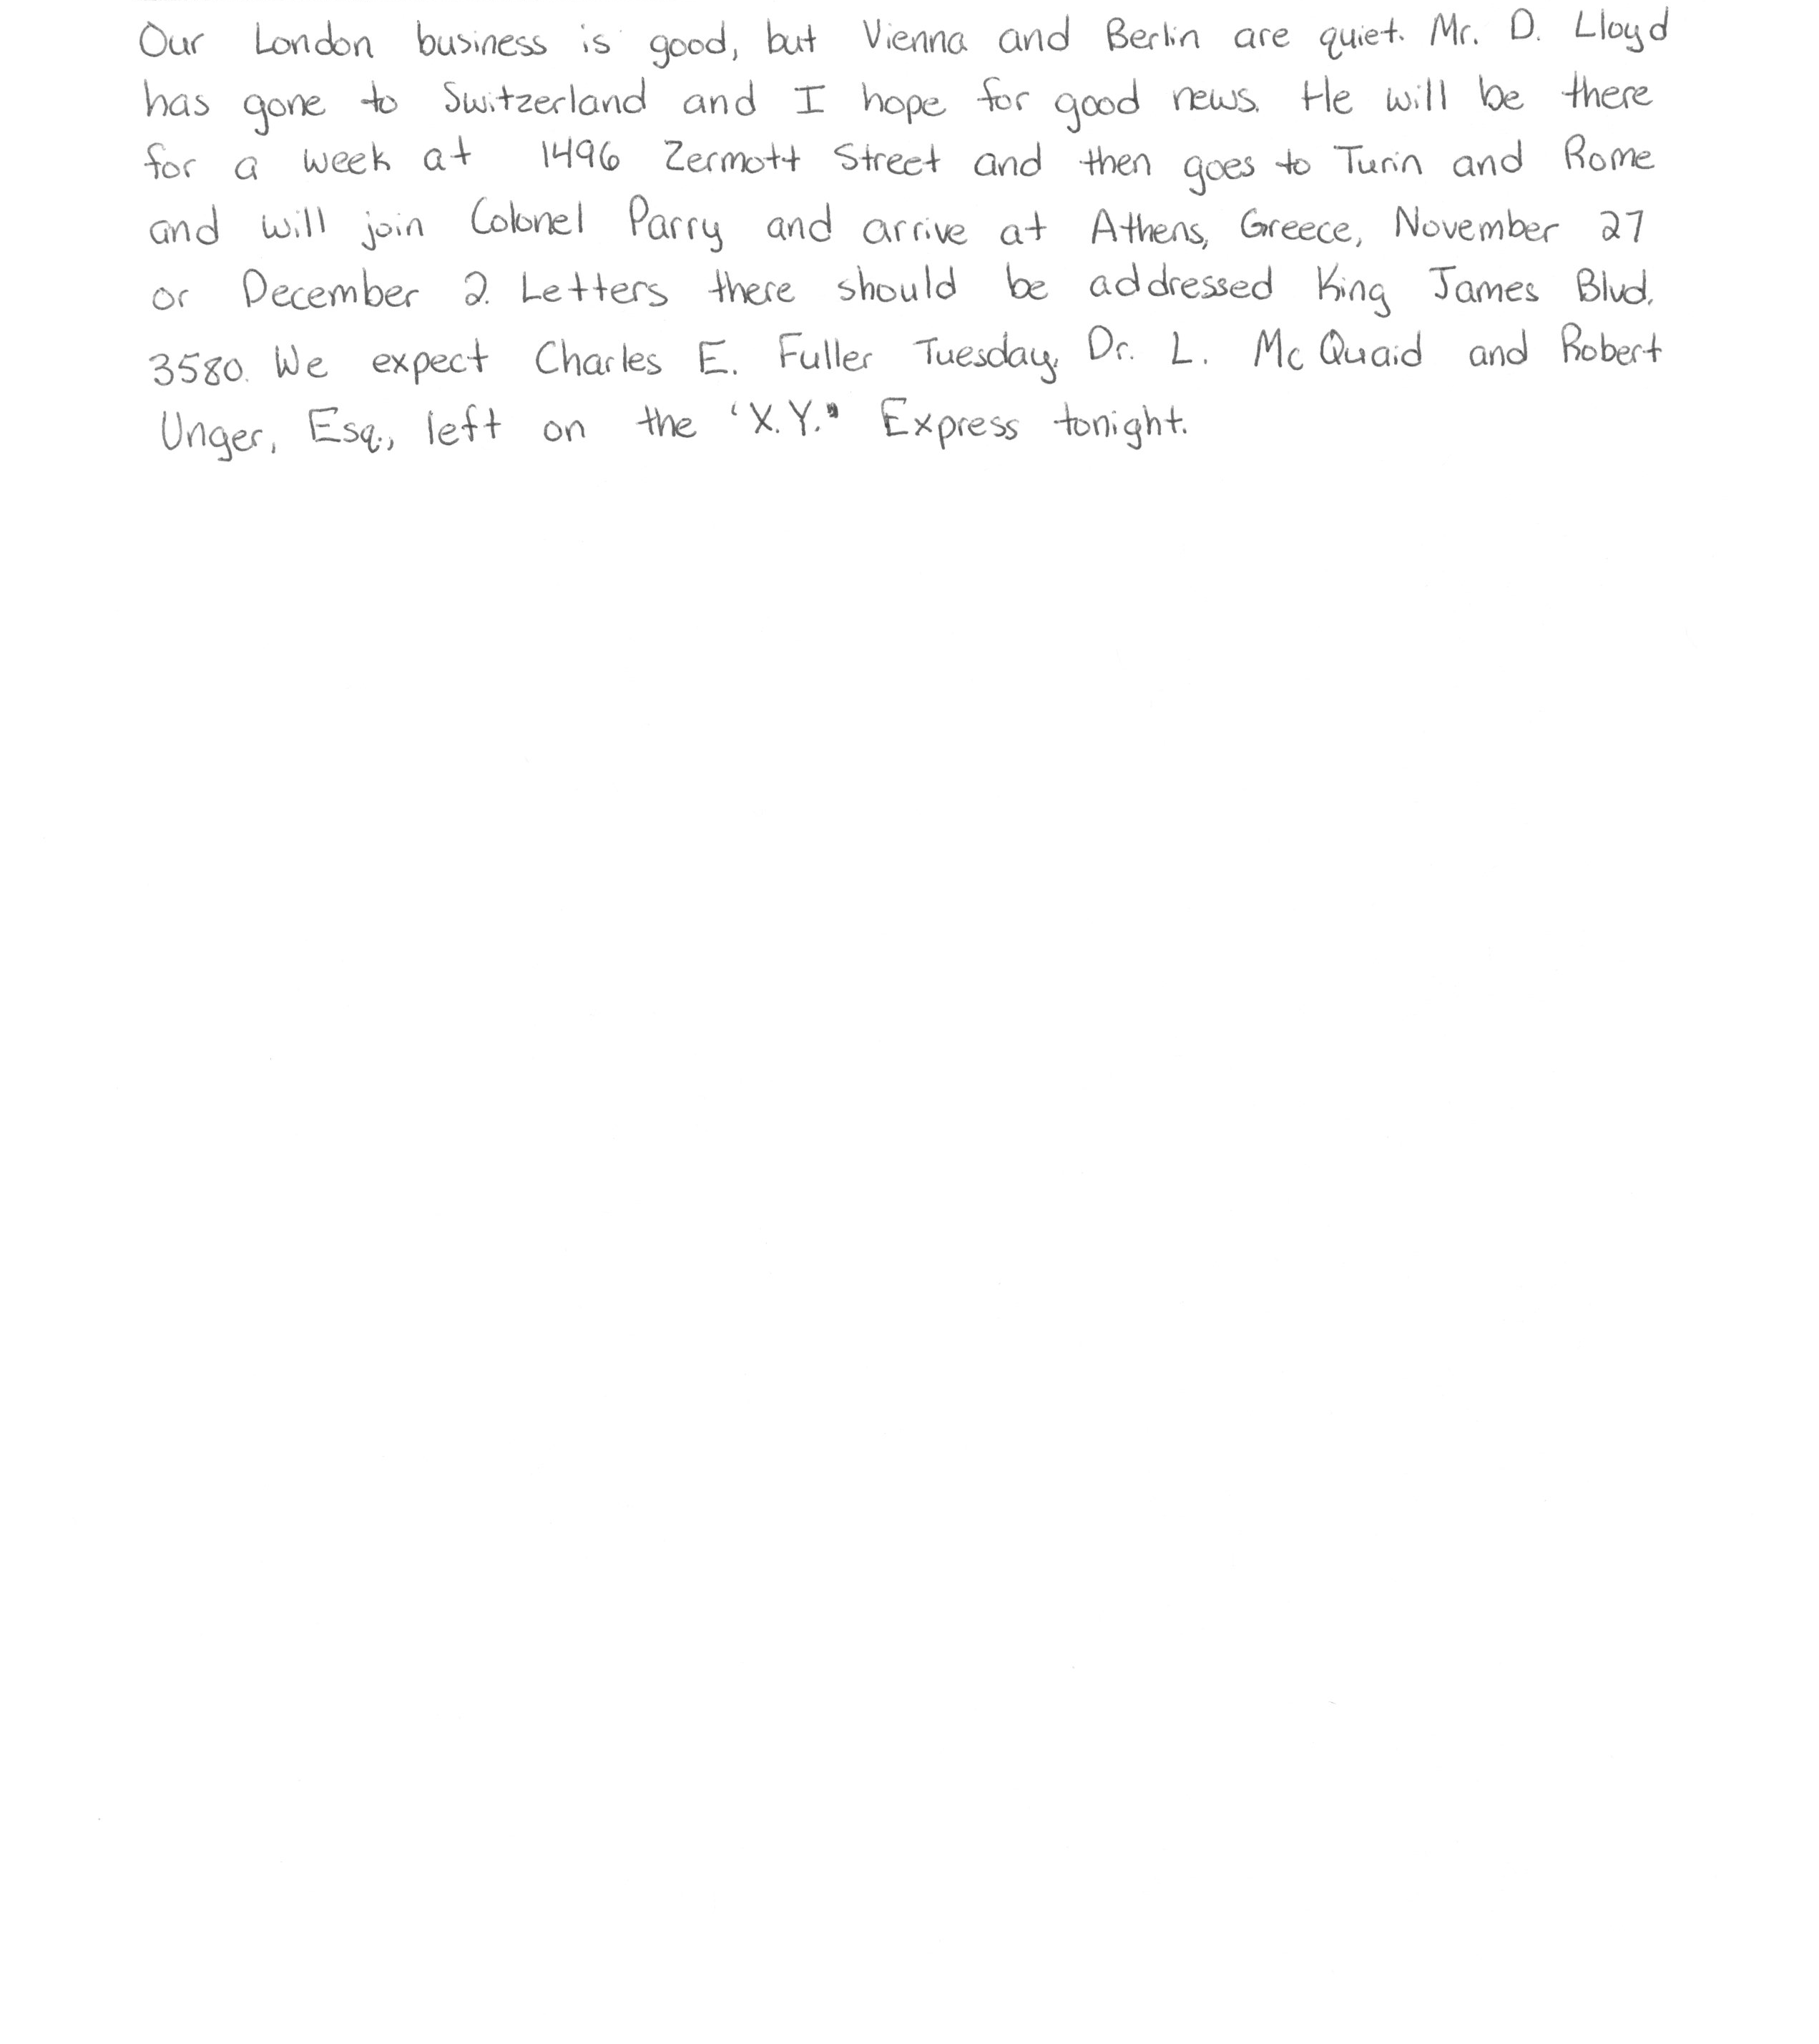 Our London business is good, but Vienna and Berlin are quiet. Mr. D. Lloyd
has gone to Switzerland and I hope for good news. He will be there
for a week at 1496 Zermott Street and then goes to Turin and Rome
and will join Colonel Parry and arrive at Athens, Greece, November 27
or December 2. Letters there should be addressed King James Blvd.
3580. We expect Charles E. Fuller Tuesday. Dr. L. McQuaid and Robert
Unger, Esq., left on the 'X.Y." Express tonight.